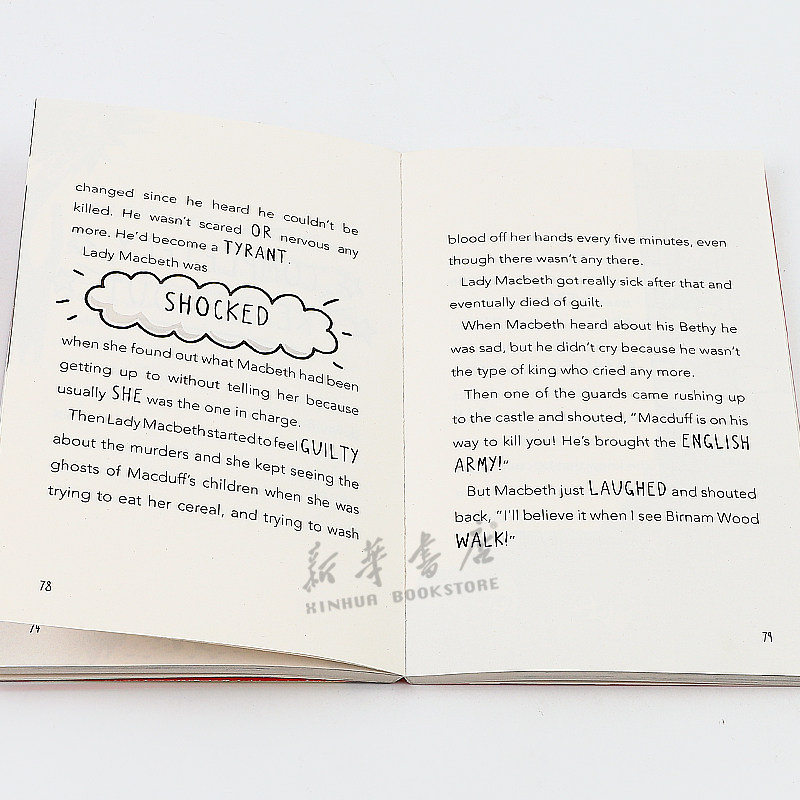 changed since he heard he couldn't be
killed. He wasn't scared OR nervous any
more. He'd become a TYRANT.
Lady Macbeth was
SHOCKED
when she found out what Macbeth had been
getting up to without telling her because
usually SHE was the one in charge.
Then Lady Macbeth started to feel GUILTY
about the murders and she kept seeing the
ghosts of Macduff's children when she was
trying to eat her cereal, and trying to wash
78
74
blood off her hands every five minutes, even
though there wasn't any there.
Lady Macbeth got really sick after that and
eventually died of guilt.
When Macbeth heard about his Bethy he
was sad, but he didn't cry because he wasn't
the type of king who cried any more.
Then one of the guards came rushing up
to the castle and shouted, "Macduff is on his
way to kill you! He's brought the ENGLISH
ARMY!"
But Macbeth just LAUGHED and shouted
back, "I'll believe it when I see Birnam Wood
WALK!"
79
新華書店
XINHUA BOOKSTORE